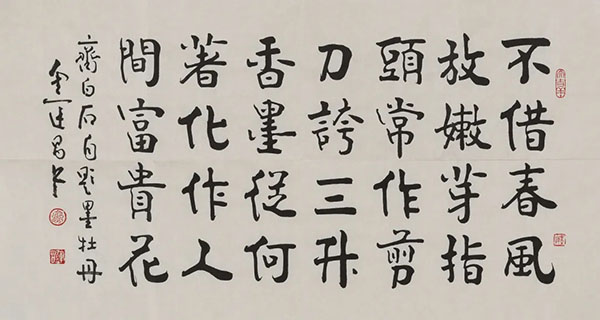 不借春風
放嫩芽指
頭常作剪
刀誇三升
香墨從何
著化作人
間富貴花
齊白石自題墨牡丹
金運昌书